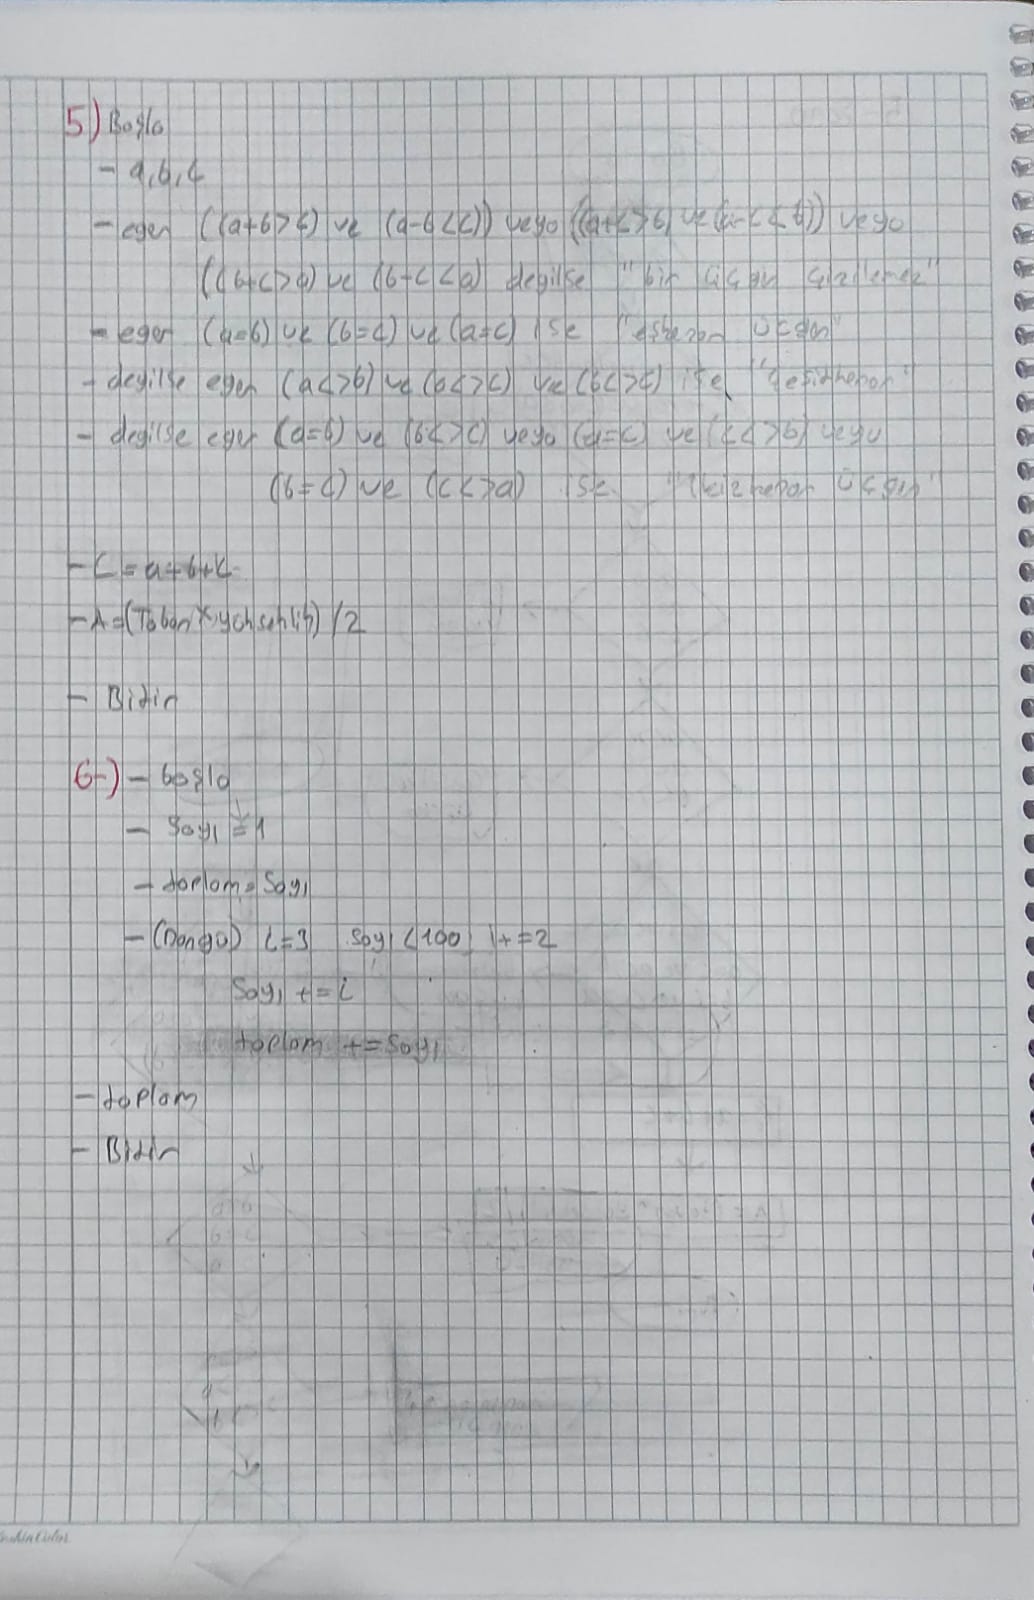 5) Başla
- a,b,c
- eger ((a+b>c) ve (a-b<c)) veya ((a+c>b) ve (a-c<b)) veya
((b+c>a) ve (b-c<a) degilse "bir üçgen çizilemez"
- eger (a=b) ve (b=c) ve (a=c) ise "eşkenar üçgen"
- degilse eger (a<>b) ve (a<>c) ve (b<>c) ise "çeşitkenar"
- degilse eger (a=b) ve (b<>c) veya (a=c) ve (c<>b) veya
(b=c) ve (c<>a) ise "ikizkenar üçgen"
- Ç=a+b+c
- A=(Taban x yükseklik)/2
- Bitir
6-) - başla
- sayı = 1
- toplam = sayı
- (Döngü) i=3 sayı<100 i+=2
Sayı += i
toplam += sayı
- toplam
- Bitir